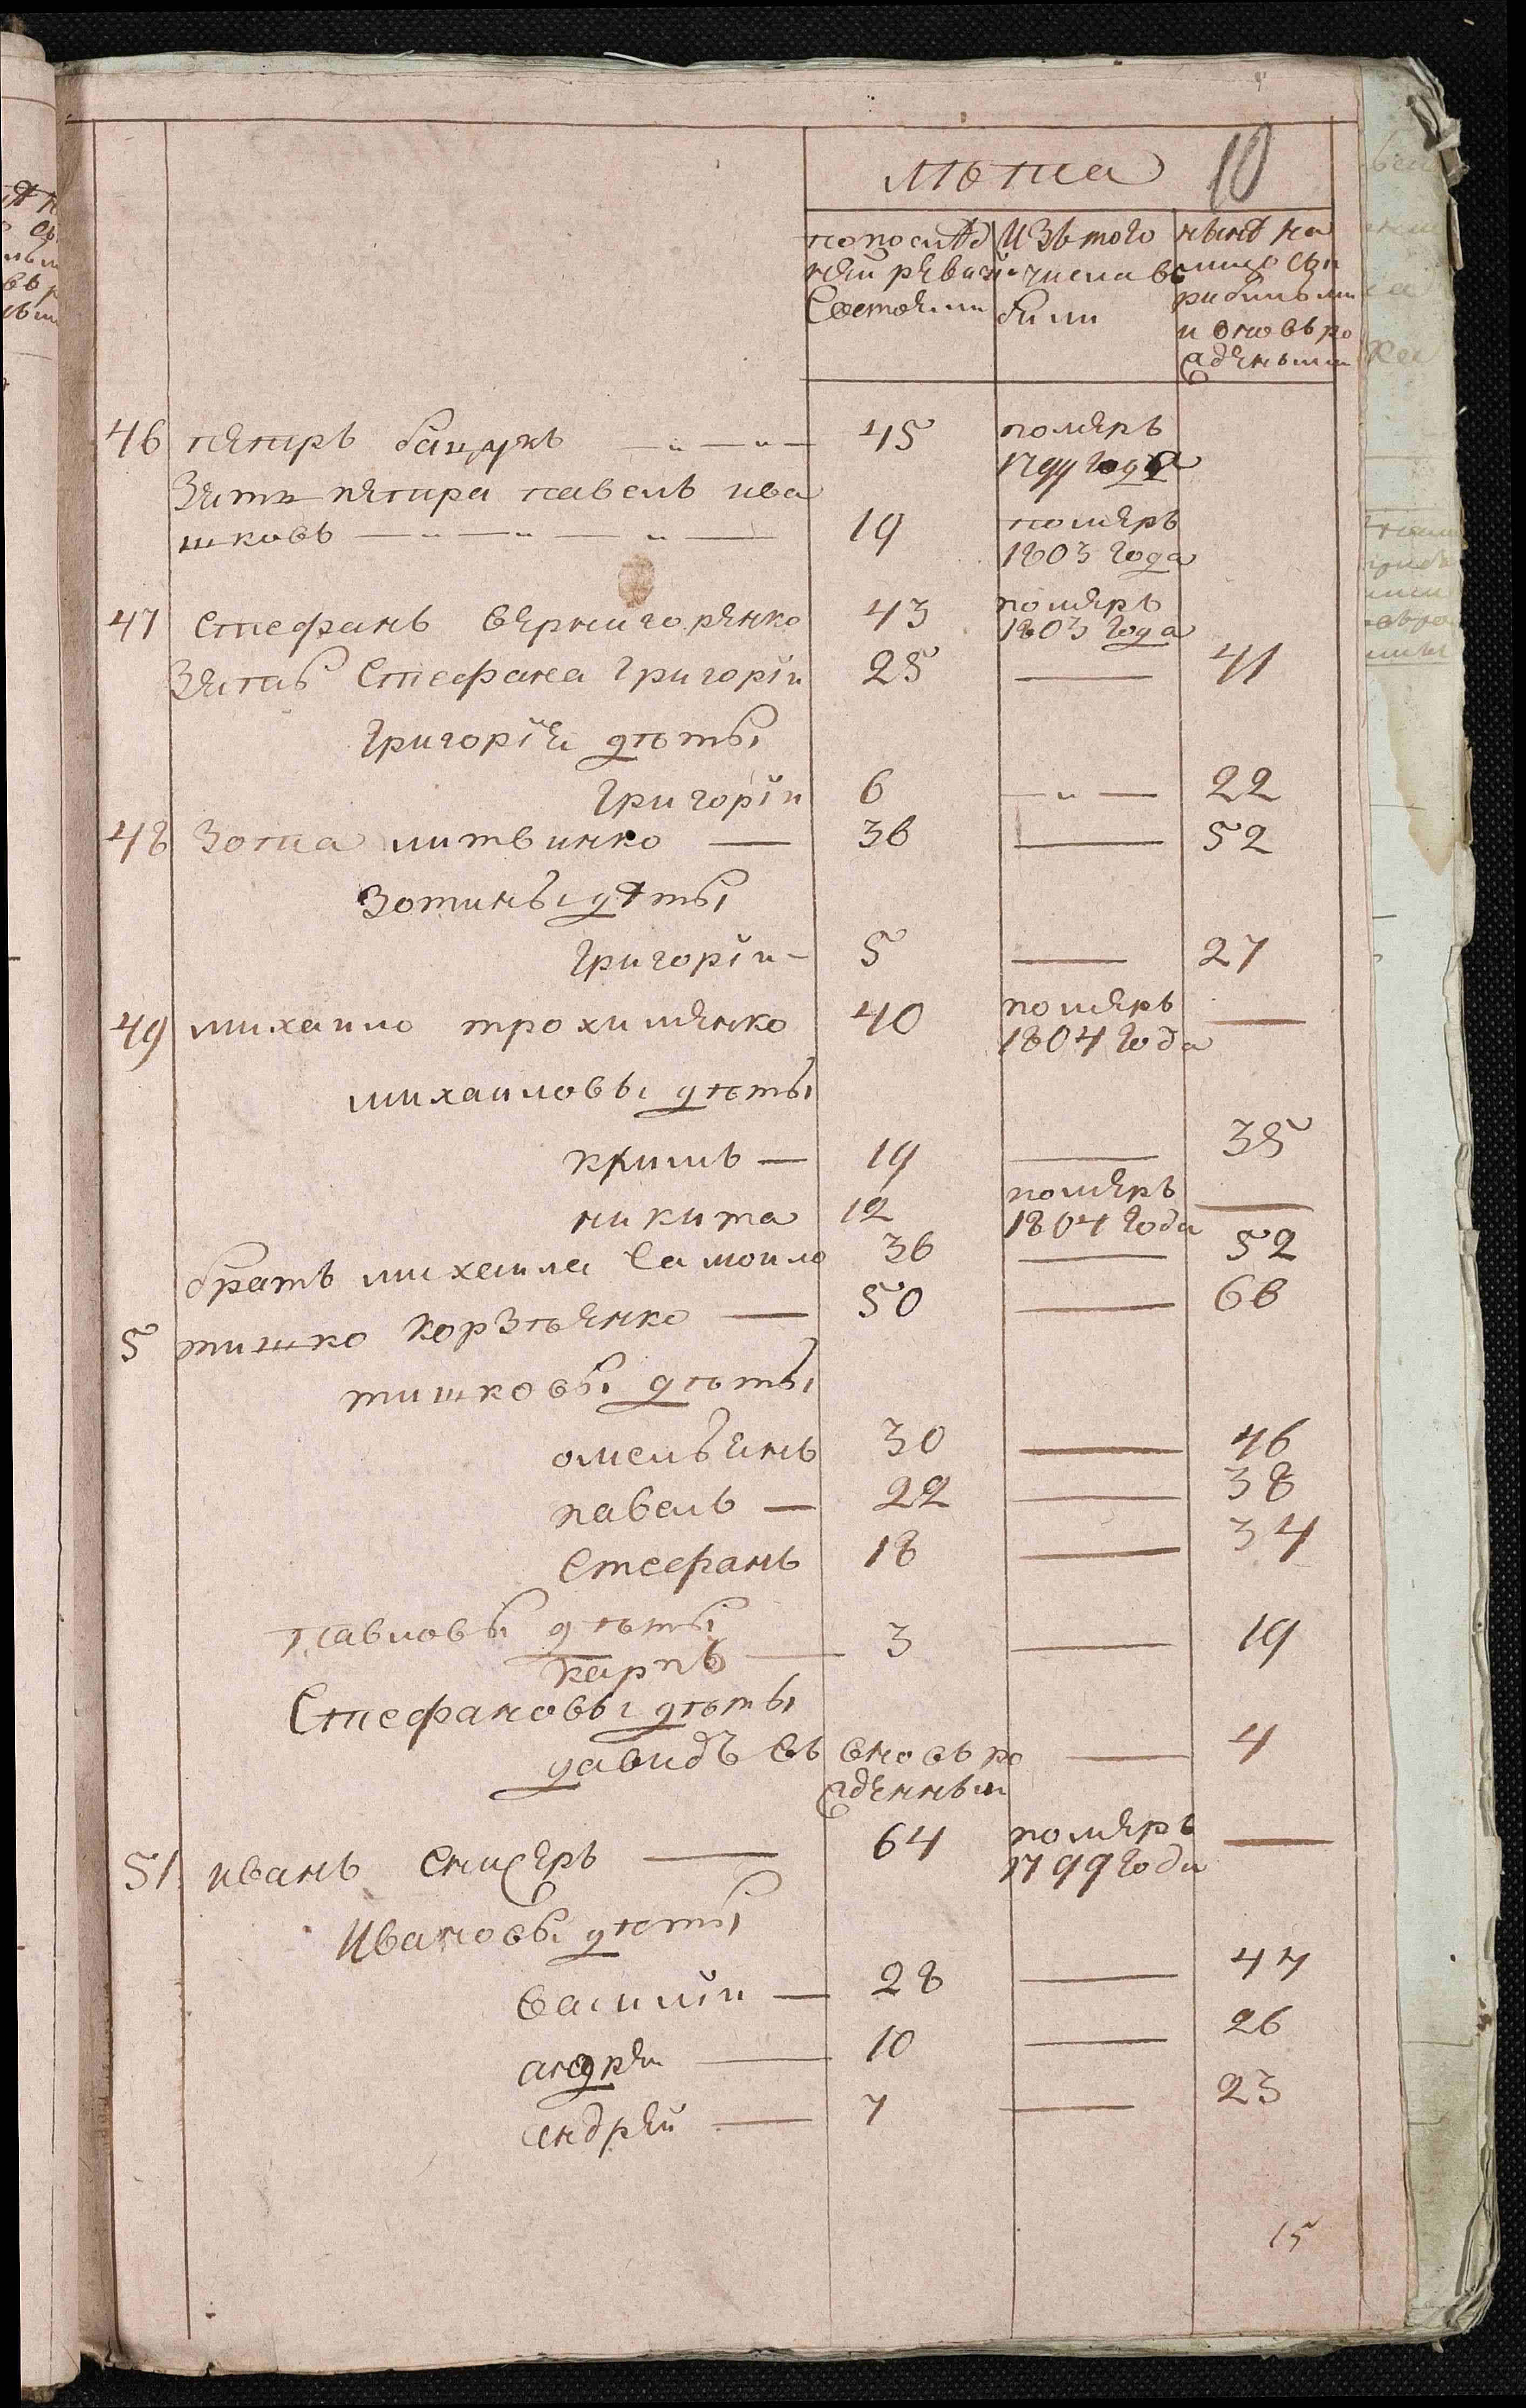 лѣта 10
попослѣд Изъ того нынѣ на
нѣй ревизй числа вы лицо съп
Состояли были рибылыми
и вновь ро
ждеными
46 петръ бандукъ 45 померъ
1799 года
Зять петра павелъ ива
шковъ 19 померъ
1803 года
47 стефанъ вернигоренко 43 померъ
1803 года
Зять Стефана григорій 25 — 41
григорія дѣты
григорій 6 — 22
48 Зотъа литвинко — 36 — 52
Зотины дѣты
григорій 5 — 27
49 михаило трохименко 40 померъ —
1804 года
михаиловы дѣты
климъ — 19 — 35
никита 12 померъ —
1804 года
братъ михаила Самоило 36 — 52
5 тишко корзѣенко — 50 — 66
тишковы дѣты
омельянъ 30 — 46
павелъ — 22 — 38
Стефанъ 18 — 34
павловы дѣты
карпъ — 3 — 19
Стефановы дѣты
давидъ въ вновь ро — 4
жденныи
51 иванъ снижеръ — 64 померъ —
1799 года
Ивановы дѣты
василій — 28 — 44
андрей — 10 — 26
андрей — 7 — 23
15